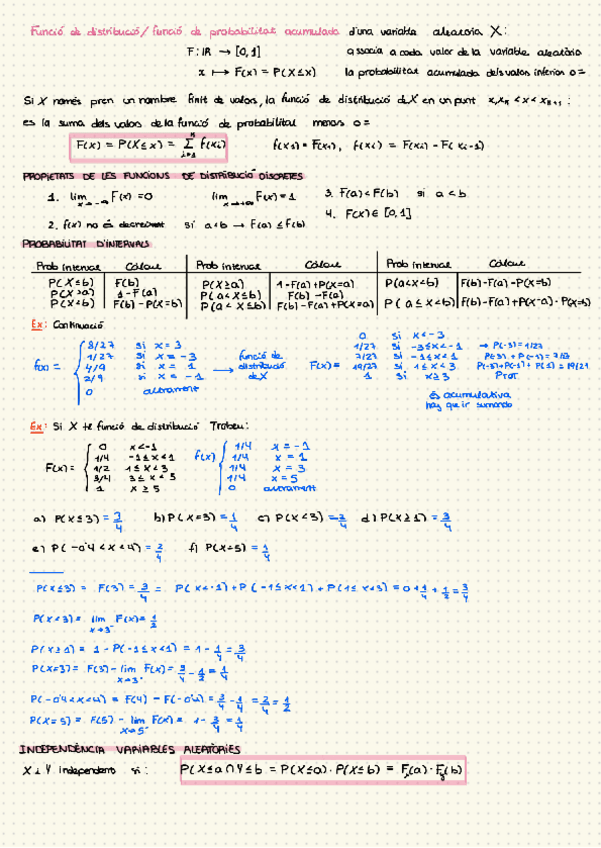 Funció de distribució / funció de probabilitat acumulada d'una variable aleatòria X:
F: IR → [0,1] associa a cada valor de la variable aleatòria
x ↦ F(x) = P(X≤x) la probabilitat acumulada dels valors inferiors o =
Si X només pren un nombre finit de valors, la funció de distribució de X en un punt x, xₙ < x < xₙ₊₁ :
és la suma dels valors de la funció de probabilitat menors o =
F(x) = P(X≤x) = Σ f(xi) f(x1) = F(x1), f(xi) = F(xi) - F(xi-1)
PROPIETATS DE LES FUNCIONS DE DISTRIBUCIÓ DISCRETES
1. lim x→-∞ F(x) = 0 lim x→+∞ F(x) = 1 3. F(a) < F(b) si a < b
4. F(x) ∈ [0,1]
2. f(x) no és decreixent si a<b → F(a) ≤ F(b)
PROBABILITAT D'INTERVALS
Prob interval Càlcul Prob interval Càlcul Prob interval Càlcul
P(X≤b) F(b) P(X≥a) 1-F(a)+P(X=a) P(a<X<b) F(b)-F(a)-P(X=b)
P(X>a) 1-F(a) P(a<X≤b) F(b)-F(a)
P(X<b) F(b)-P(X=b) P(a≤X≤b) F(b)-F(a)+P(X=a) P(a≤X<b) F(b)-F(a)+P(X=a)-P(X=b)
Ex: Continuació
0 si x<-3
8/27 si x = 3 1/27 si -3≤x<-1 → P(-3)=1/27
1/27 si x = -3 funció de 7/27 si -1≤x<1 P(-3)+P(-1)=7/27
f(x)= 4/9 si x = 1 → distribució F(x)= 19/27 si 1≤x<3 P(-3)+P(-1)+P(1)=19/27
2/9 si x = -1 de X 1 si x≥3 P tot
0 altrament
És acumulativa
hay que ir sumando
Ex: Si X té funció de distribució Trobeu:
0 x<-1 1/4 x = -1
1/4 -1≤x<1 f(x) 1/4 x = 1
F(x)= 1/2 1≤x<3 1/4 x = 3
3/4 3≤x<5 1/4 x = 5
1 x≥5 0 altrament
a) P(X≤3) = 3/4 b) P(X=3) = 1/4 c) P(X<3) = 2/4 d) P(X≥1) = 3/4
e) P(-0'4<X<4) = 2/4 f) P(X=5) = 1/4
P(X≤3) = F(3) = 3/4 = P(X<-1) + P(-1≤X<1) + P(1≤X<3) = 0 + 1/4 + 1/2 = 3/4
P(X<3) = lim x→3⁻ F(x) = 1/2
P(X≥1) = 1 - P(-1≤X<1) = 1 - 1/4 = 3/4
P(X=3) = F(3) - lim x→3⁻ F(x) = 3/4 - 1/2 = 1/4
P(-0'4<X<4) = F(4) - F(-0'4) = 3/4 - 1/4 = 2/4 = 1/2
P(X=5) = F(5) - lim x→5⁻ F(x) = 1 - 3/4 = 1/4
INDEPENDÈNCIA VARIABLES ALEATÒRIES
X i Y independents si: P(X≤a ∩ Y≤b = P(X≤a)·P(X≤b) = Fx(a)·Fy(b)